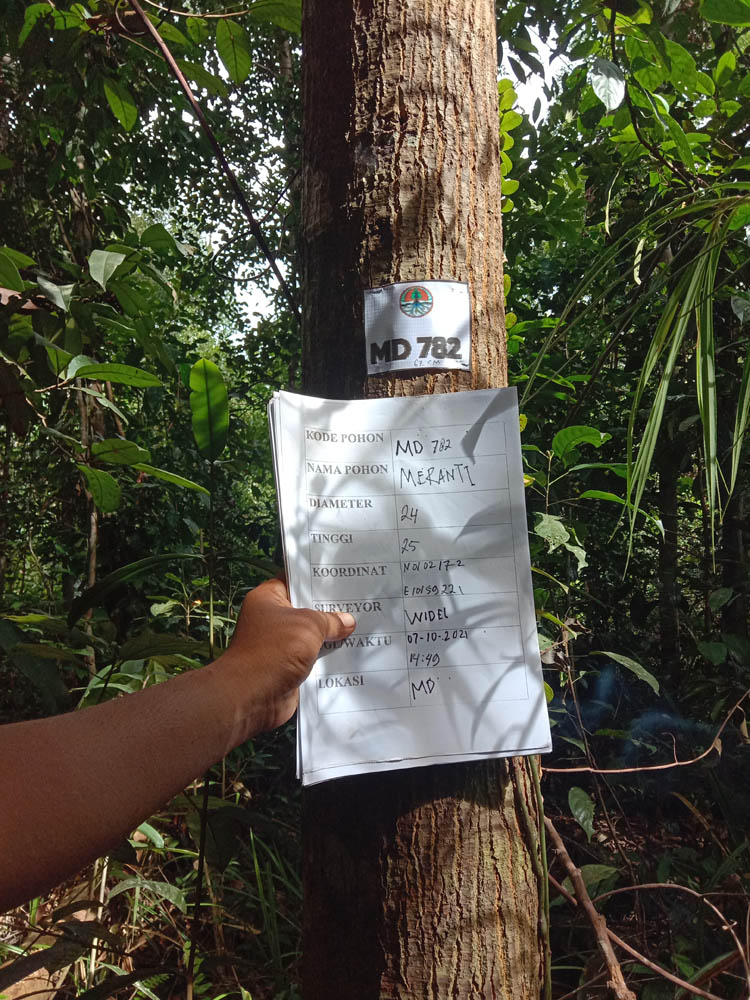 MD 782
KODE POHON MD 782
NAMA POHON MERANTI
DIAMETER 24
TINGGI 25
KOORDINAT
SURVEYOR WIDEL
07-10-2021
14:49
LOKASI MD